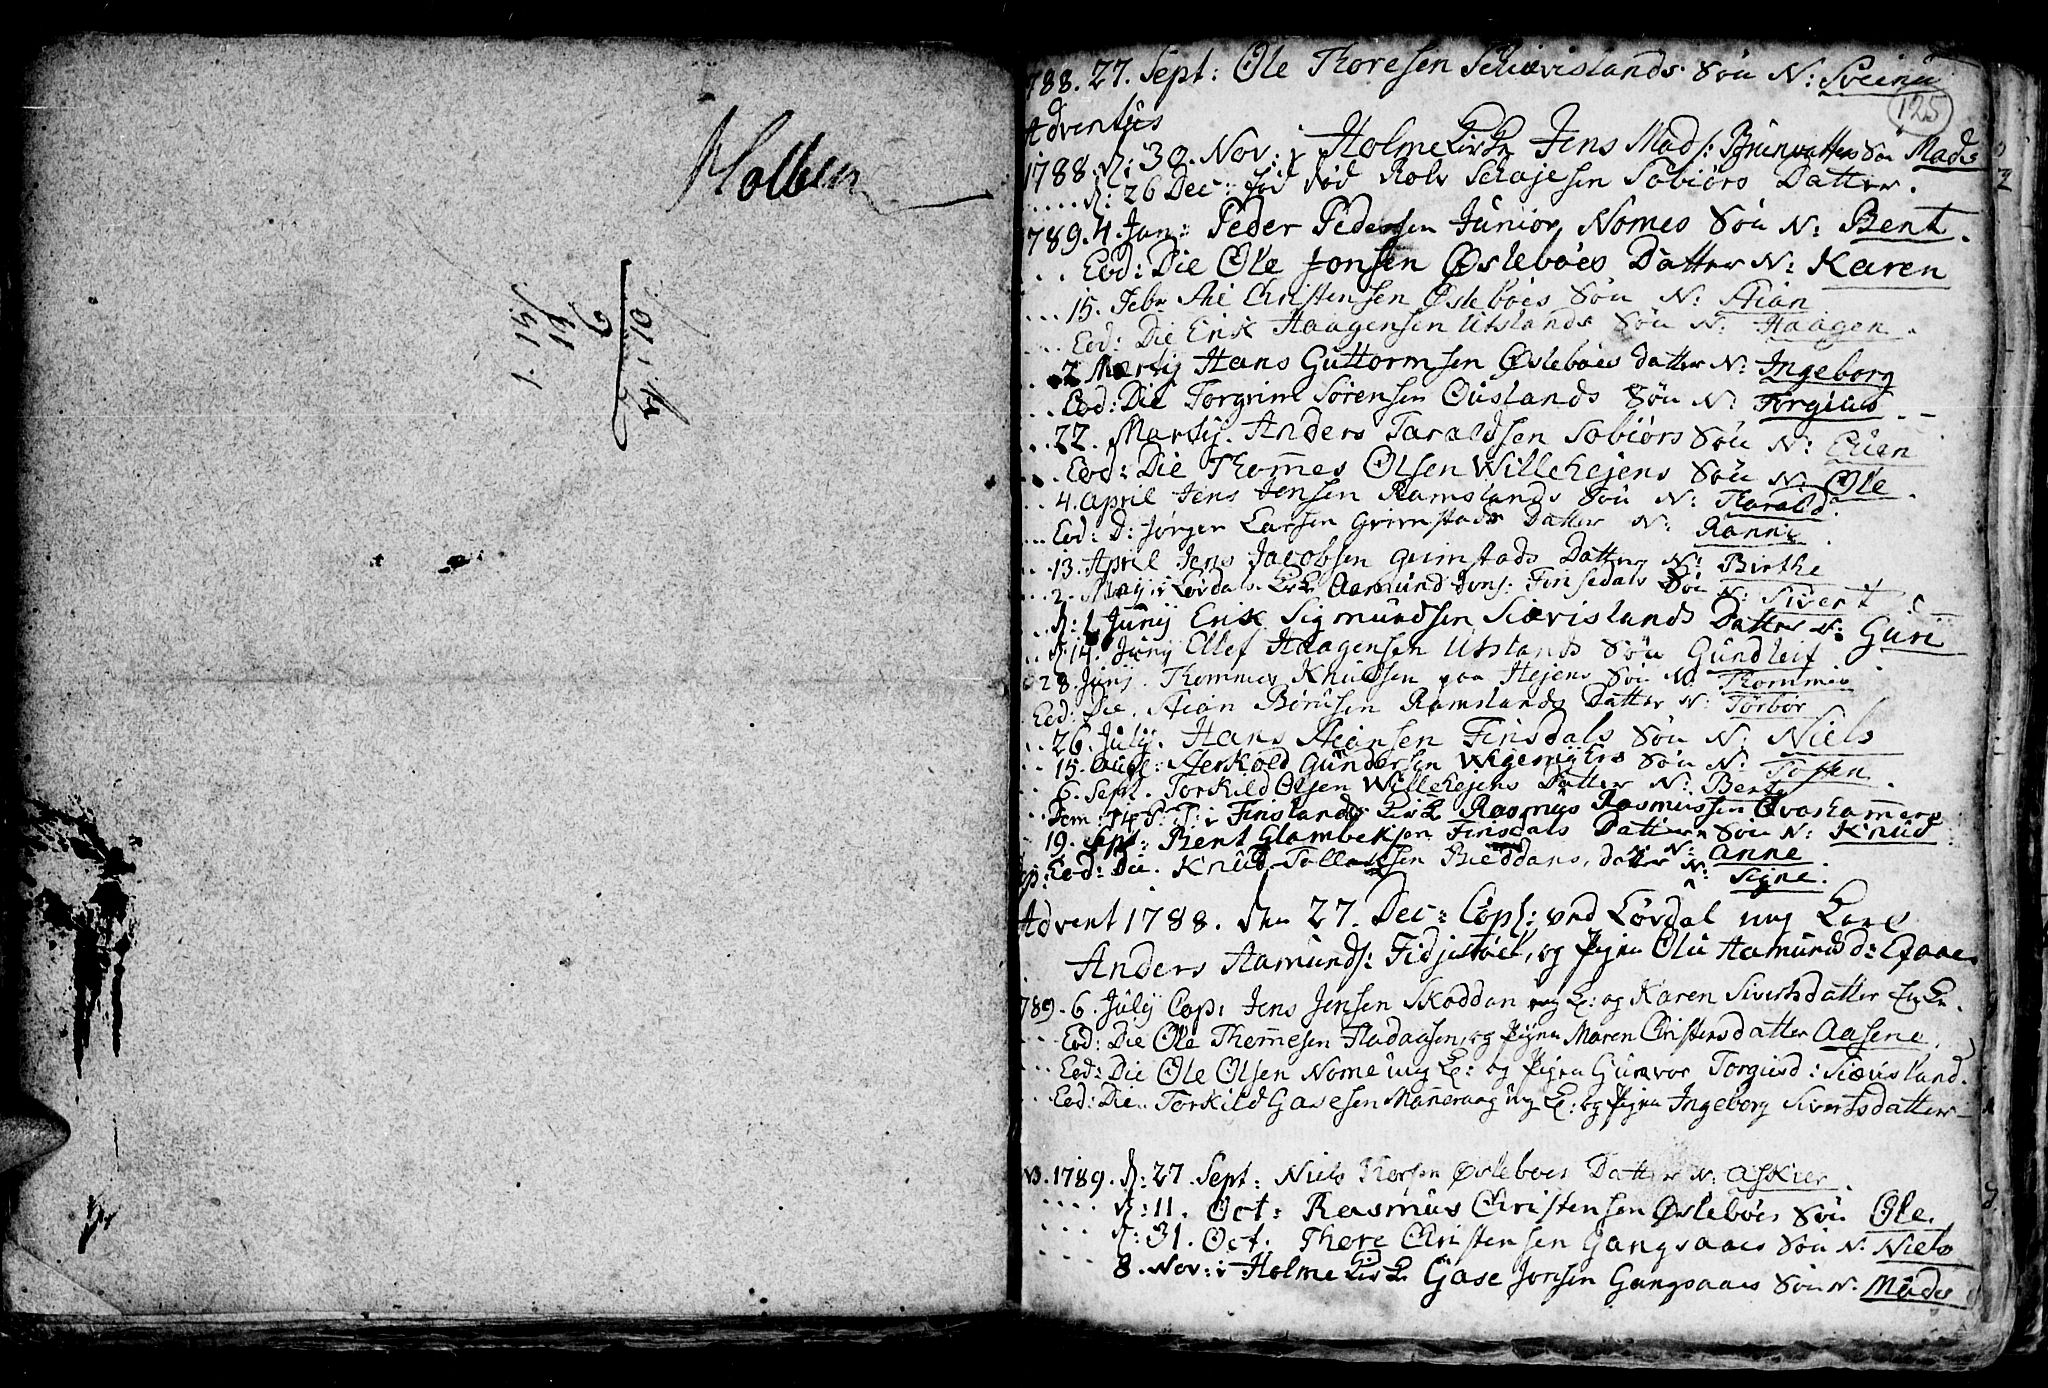 Holben
1. 15/
19/
6
4. 10.
788. 27. Sept: Ole Thoresen Schævislands Søn N: Sveinu
125
Adventus
1788. d: 30. Nov: i Holme Kirke Jens Mads: Søn Mads
.... d: 26 Dec: fød død Rolv Schajesen Sobiørs Datter.
789. 4. Jan: Peder Pedersen Junior, Nomes Søn N: Bent.
... Eod: Die Ole Jonsen Øslebøes Datter N: Karen
... 15. Febr Christensen Øslebøes Søn N: Stian
... Eod: Die Erik Haagensen Utslands Søn N: Haagen.
.. 2 Martij Hans Guttormsen Øslebøes datter N: Ingeborg
... Eod: Die Torgrim Sørensen Ouslands Søn N: Torgius. -
.. 22. Martij. Anders Taraldsen Sobiørs Søn N: Even
.. Eod: Die Thomes Olsen Willehejens Søn N: Ole.
.. 4. April Jens Jensen Ramslands Søn N: Tharald.
... Eod: D: Jørgen Larsen Grimstads Datter N: Ranni.
.. 13. April Jens Jacobsen Grimstads Datter N: Birthe
.. 2. Maij i Løvdals Kirk Aamund Jons: Finsedals Søn N: Sivert
.. d: 1 Junij Erik Sigmundsen Siævislands Datter N: Guri
.. d: 14. Junij Ellef Haagensen Utslands Søn Gundleif
. 28. Junij. Thommes Knudsen paa Hejens Søn N: Thommes
Eod: Die. Stian Bentsen Ramslands Datter N: Torbør
.. 26. July. Hans Stiansen Finsdals Søn N: Niels
.. 15. Aug: Aerkold Gundersen Søn N: Tosten
.. 6. Sept. Torkild Olsen Willehejens Datter N: Berte
.. Dom: 14 P: T: i Finslands Kirk Rasmus Rasmussen Øvashammers
.. 19. Sept: Bent Glambeksen Finsdals Datter Søn N: Knud
N: Anne
Eod: Die. Knud Tollaksen Breddans, datter N: Signe.
Advent 1788. den 27. Dec: Copl: ved Løvdal ung Karl
Anders Aamunds: Fidjestøel, og Pigen Oliu Aamunds D:
789. 6. July Cop: Jens Jensen Skoddan ung K: og Karen Sivertsdatter
... Eod: Die Ole Thomesen Fladaasen, og Pigen Maren Christensdatter Aasene.
... Eod: Die Ole Olsen Nome ung K: og Pigen Gunvor Torgiusd: Siævisland.
... Eod: Die. Torkild Gasesen Manerang ung K: og Pigen Ingeborg Sivertsdatter
1789. d: 27. Sept: Niels Thorsen Øslebøes Datter N: Askier.
.... d: 11. Oct: Rasmus Christensen Øslebøes Søn Ole.
.... d: 31. Oct. Thore Christensen Gangsaaes Søn N: Niels
.... 8. Nov: i Holme Kirk Gase Jonsen Gangsaaes Søn N: Mades